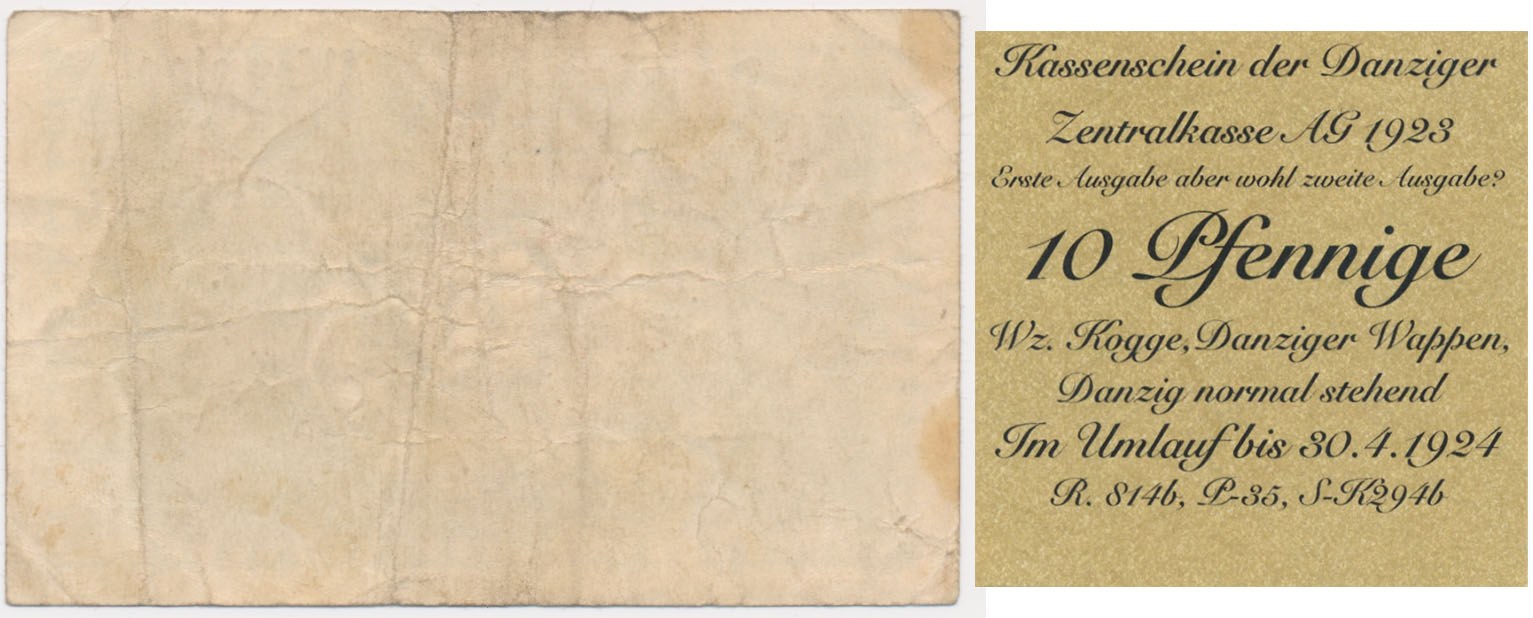 Kassenschein der Danziger
Zentralkasse AG 1923
Erste Ausgabe aber wohl zweite Ausgabe?
10 Pfennige
Wz. Kogge, Danziger Wappen,
Danzig normal stehend
Im Umlauf bis 30.4.1924
R. 814b, P-35, S-K294b